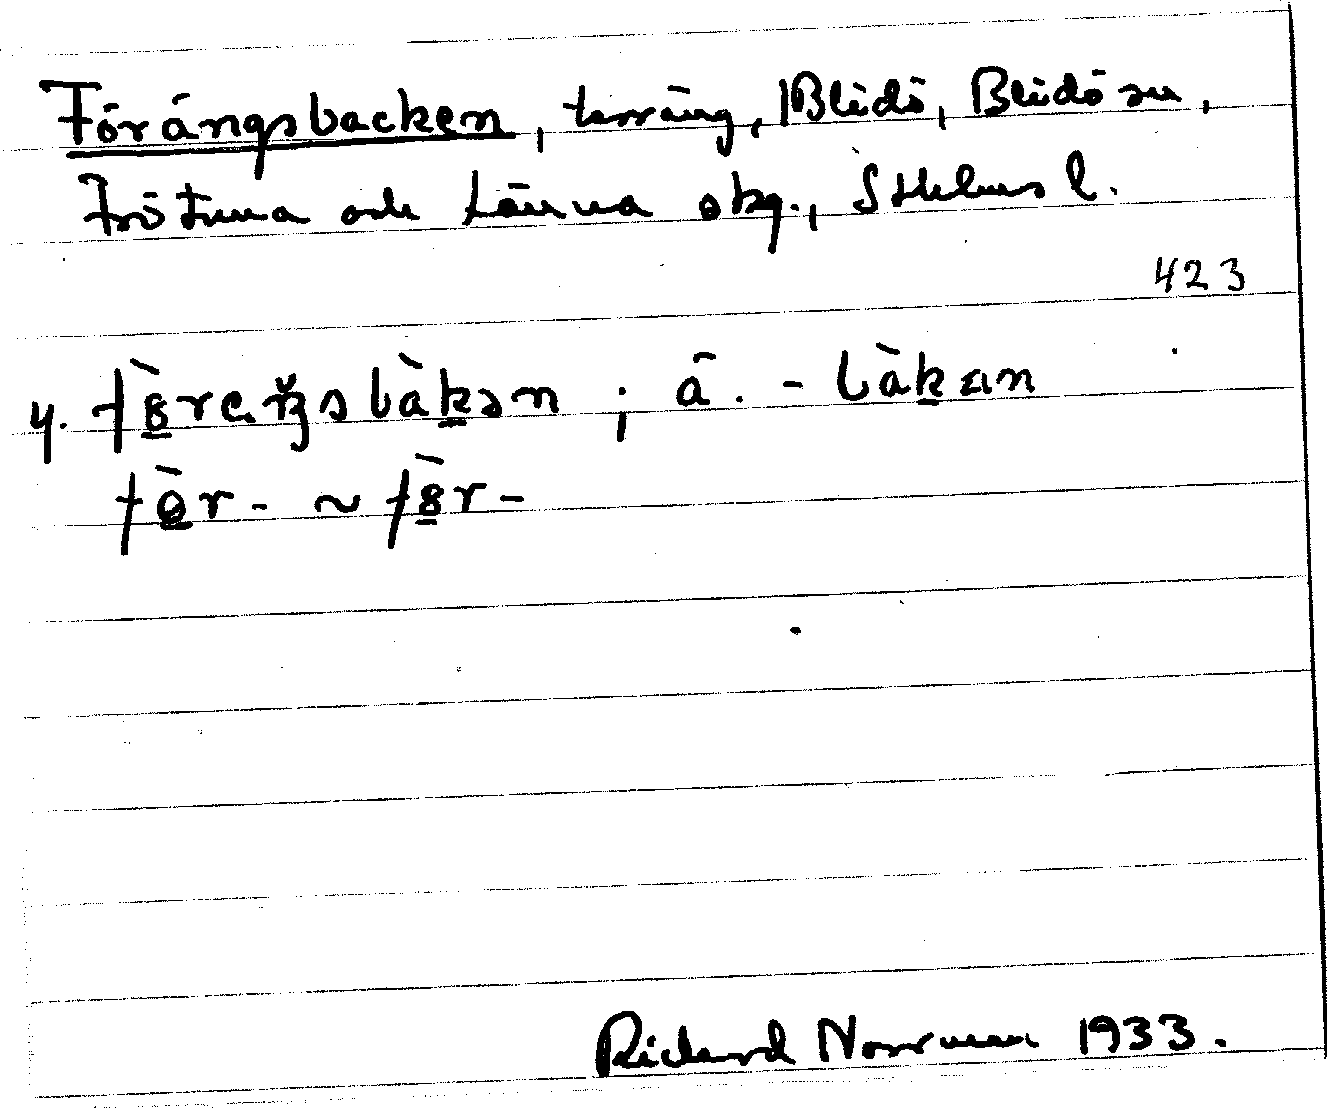 Förängsbacken, terräng, Blidö, Blidö sn,
Frötuna och Länna skg., Sthlms l.
423
y. fȍ̲reŋsbàk̲ən ; ä. - bàk̲an
fö̲̀r- ~ fȍ̲r-
Richard Norrman 1933.